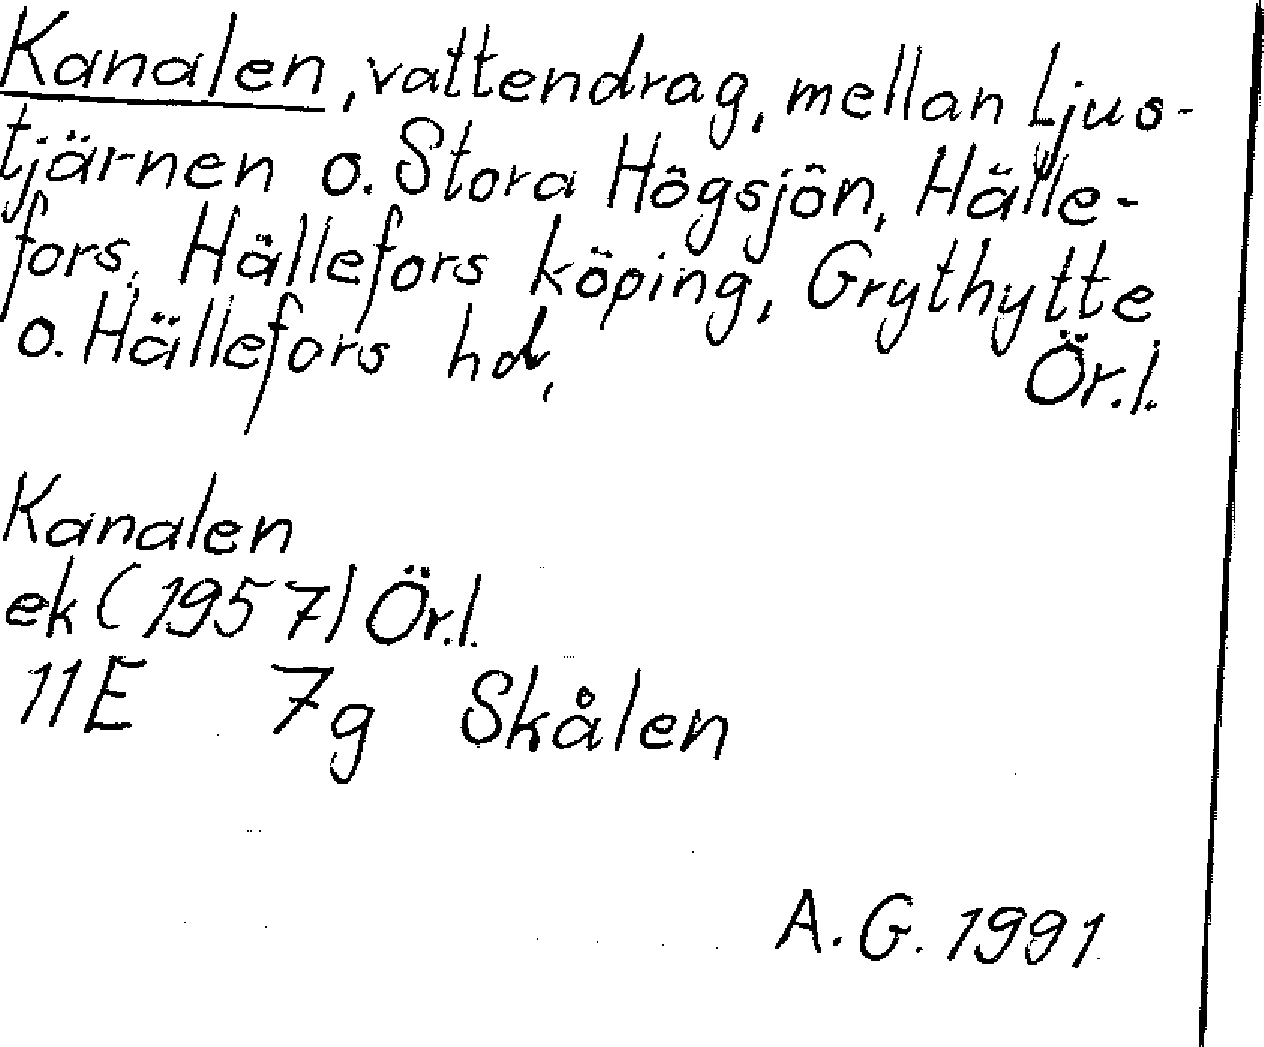 Kanalen, vattendrag, mellan Ljus-
tjärnen o. Stora Högsjön, Hälle-
fors, Hällefors köping, Grythytte
o. Hällefors hd, Ör.l.
Kanalen
ek (1957) Ör.l.
11E 7g Skålen
A.G. 1991